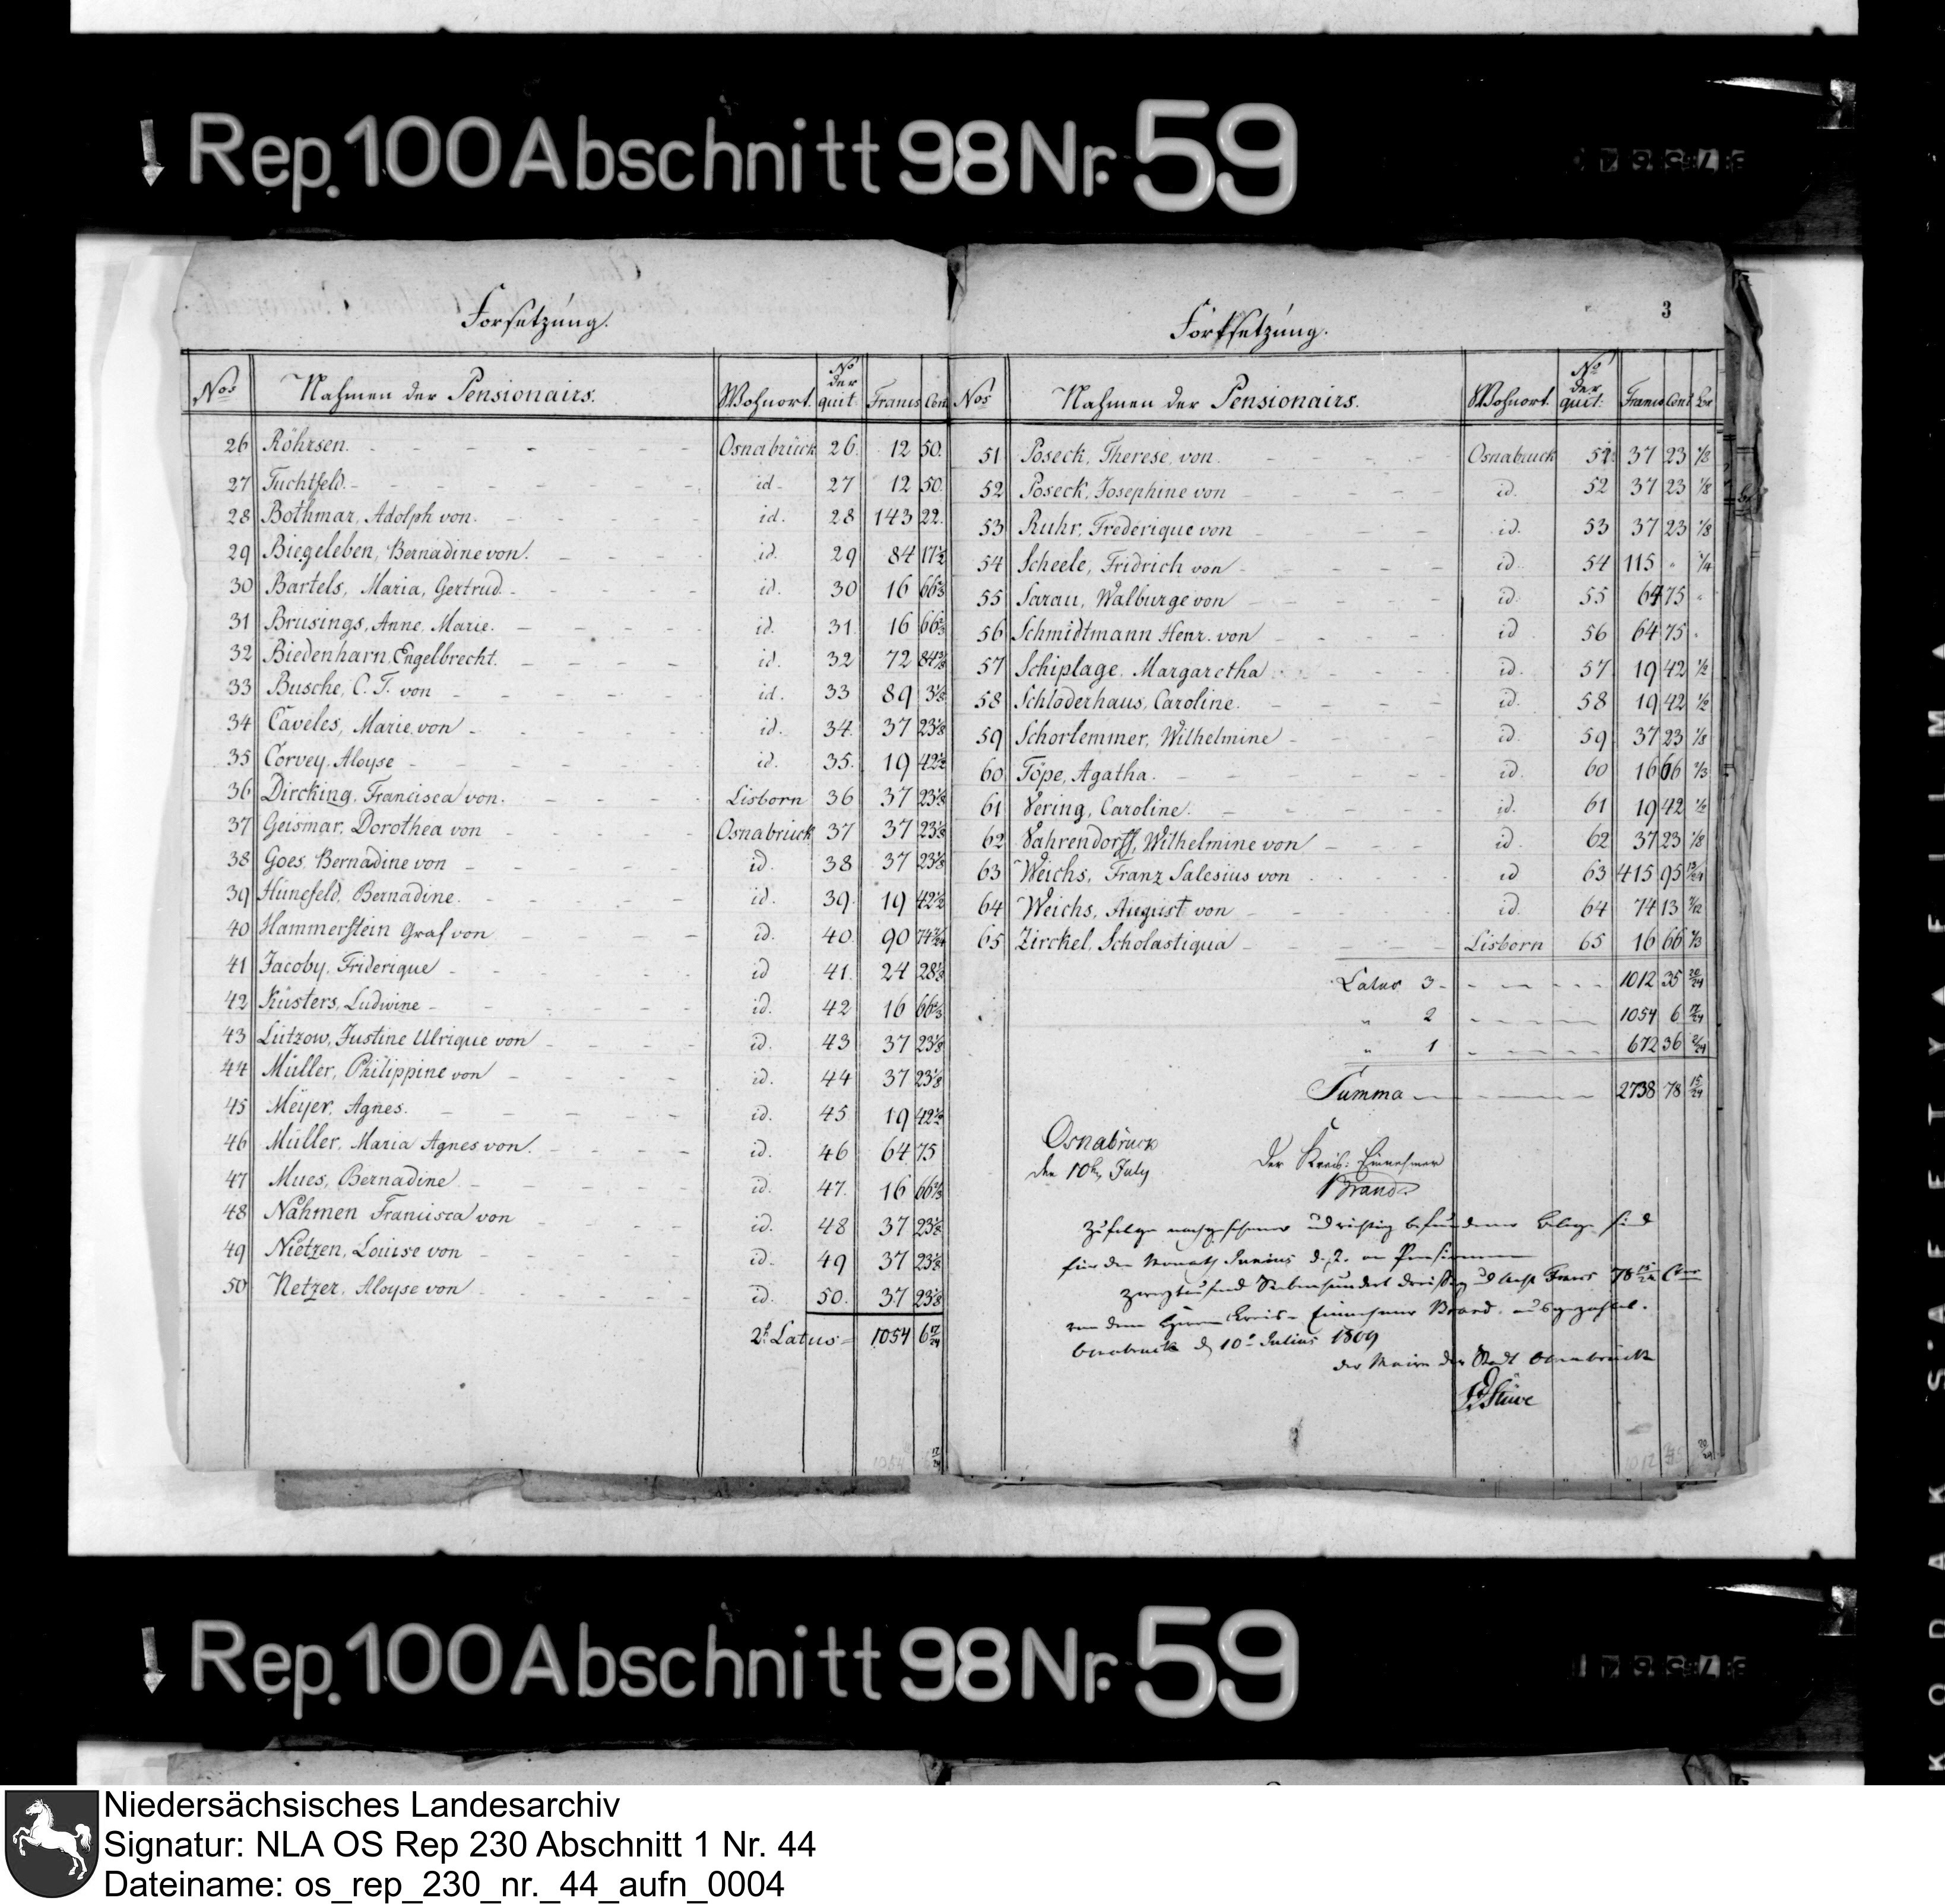 Rep. 100 Abschnitt 98 Nr. 59
Forsetzung.
Nos Nahmen der Pensionairs. Wohnort. No der quit: Francs Cent
26 Röhrsen. Osnabrück 26. 12 50.
27 Tuchtfeld. id. 27 12 50.
28 Bothmar, Adolph von. id. 28 143 22.
29 Biegeleben, Bernadine von. id. 29 84 17 1/2
30 Bartels, Maria, Gertrud. id. 30 16 66 2/3
31 Brusings, Anne, Marie. id. 31. 16 66 2/3
32 Biedenharn, Engelbrecht. id. 32 72 84 3/8
33 Busche, C. T. von id. 33 89 3 1/8
34 Caveles, Marie von id. 34. 37 23 1/8
35 Corvey, Aloyse id. 35. 19 42 1/2
36 Dircking, Francisca von. Lisborn 36 37 23 1/8
37 Geismar, Dorothea von Osnabrück 37 37 23 1/8
38 Goes, Bernadine von id. 38 37 23 1/8
39 Hünefeld, Bernadine. id. 39. 19 42 1/2
40 Hammerstein Graf von id. 40. 90 74
41 Jacoby, Friderique id 41. 24 28 1/3
42 Küsters, Ludwine id. 42 16 66 2/3
43 Lützow, Justine Ulrique von id. 43 37 23 1/8
44 Müller, Philippine von id. 44 37 23 1/8
45 Meyer, Agnes. id. 45 19 42 1/2
46 Müller, Maria Agnes von. id. 46 64 75
47 Mues, Bernadine id. 47. 16 66 2/3
48 Nahmen Francisca von id. 48 37 23 1/8
49 Nietzen, Louise von id. 49 37 23 1/8
50 Netzer, Aloyse von id. 50. 37 23 1/8
2t Latus 1054 6 17/24
3
Fortsetzung.
Nos Nahmen der Pensionairs. Wohnort. No der quit: Francs Cent
51 Poseck, Therese, von Osnabruck 51 37 23 1/8
52 Poseck, Josephine von id. 52 37 23 1/8
53 Ruhr, Frederique von id. 53 37 23 1/8
54 Scheele, Fridrich von id. 54 115 " 1/4
55 Sarau, Walburge von id. 55 64 75 "
56 Schmidtmann Henr. von id. 56 64 75 "
57 Schiplage, Margaretha id. 57 19 42 1/2
58 Schloderhaus, Caroline. id. 58 19 42 1/2
59 Schorlemmer, Wilhelmine id. 59 37 23 1/8
60 Töpe, Agatha. id. 60 16 66 2/3
61 Vering, Caroline. id. 61 19 42 1/2
62 Vahrendorff, Wilhelmine von id. 62 37 23 1/8
63 Weichs, Franz Salesius von id 63 415 95 13/24
64 Weichs, August von id. 64 74 13 7/12
65 Zirckel, Scholastiqua Lisborn 65 16 66 2/3
Latus 3 1012 35 20/24
" 2 1054 6 17/24
" 1 672 36 2/24
Summa 2738 78 15/24
Osnabrück
den 10ten July
Der Kreis: Einnehmer
Brand
Zufolge nachgesehener und richtig befundener Belege sind
für den Monath Junius d. J. an Pensionen
zweytausend Siebenhundert dreißig und acht Francs 78 15/24 Ctms
von dem Herrn Kreis-Einnehmer Brand, ausgezahlt.
Osnabrück d 10t Julius 1809
der Maire der Stadt Osnabrück
Stüve
Rep. 100 Abschnitt 98 Nr. 59
KODAK SAFETY FILM
Niedersächsisches Landesarchiv
Signatur: NLA OS Rep 230 Abschnitt 1 Nr. 44
Dateiname: os_rep_230_nr._44_aufn_0004